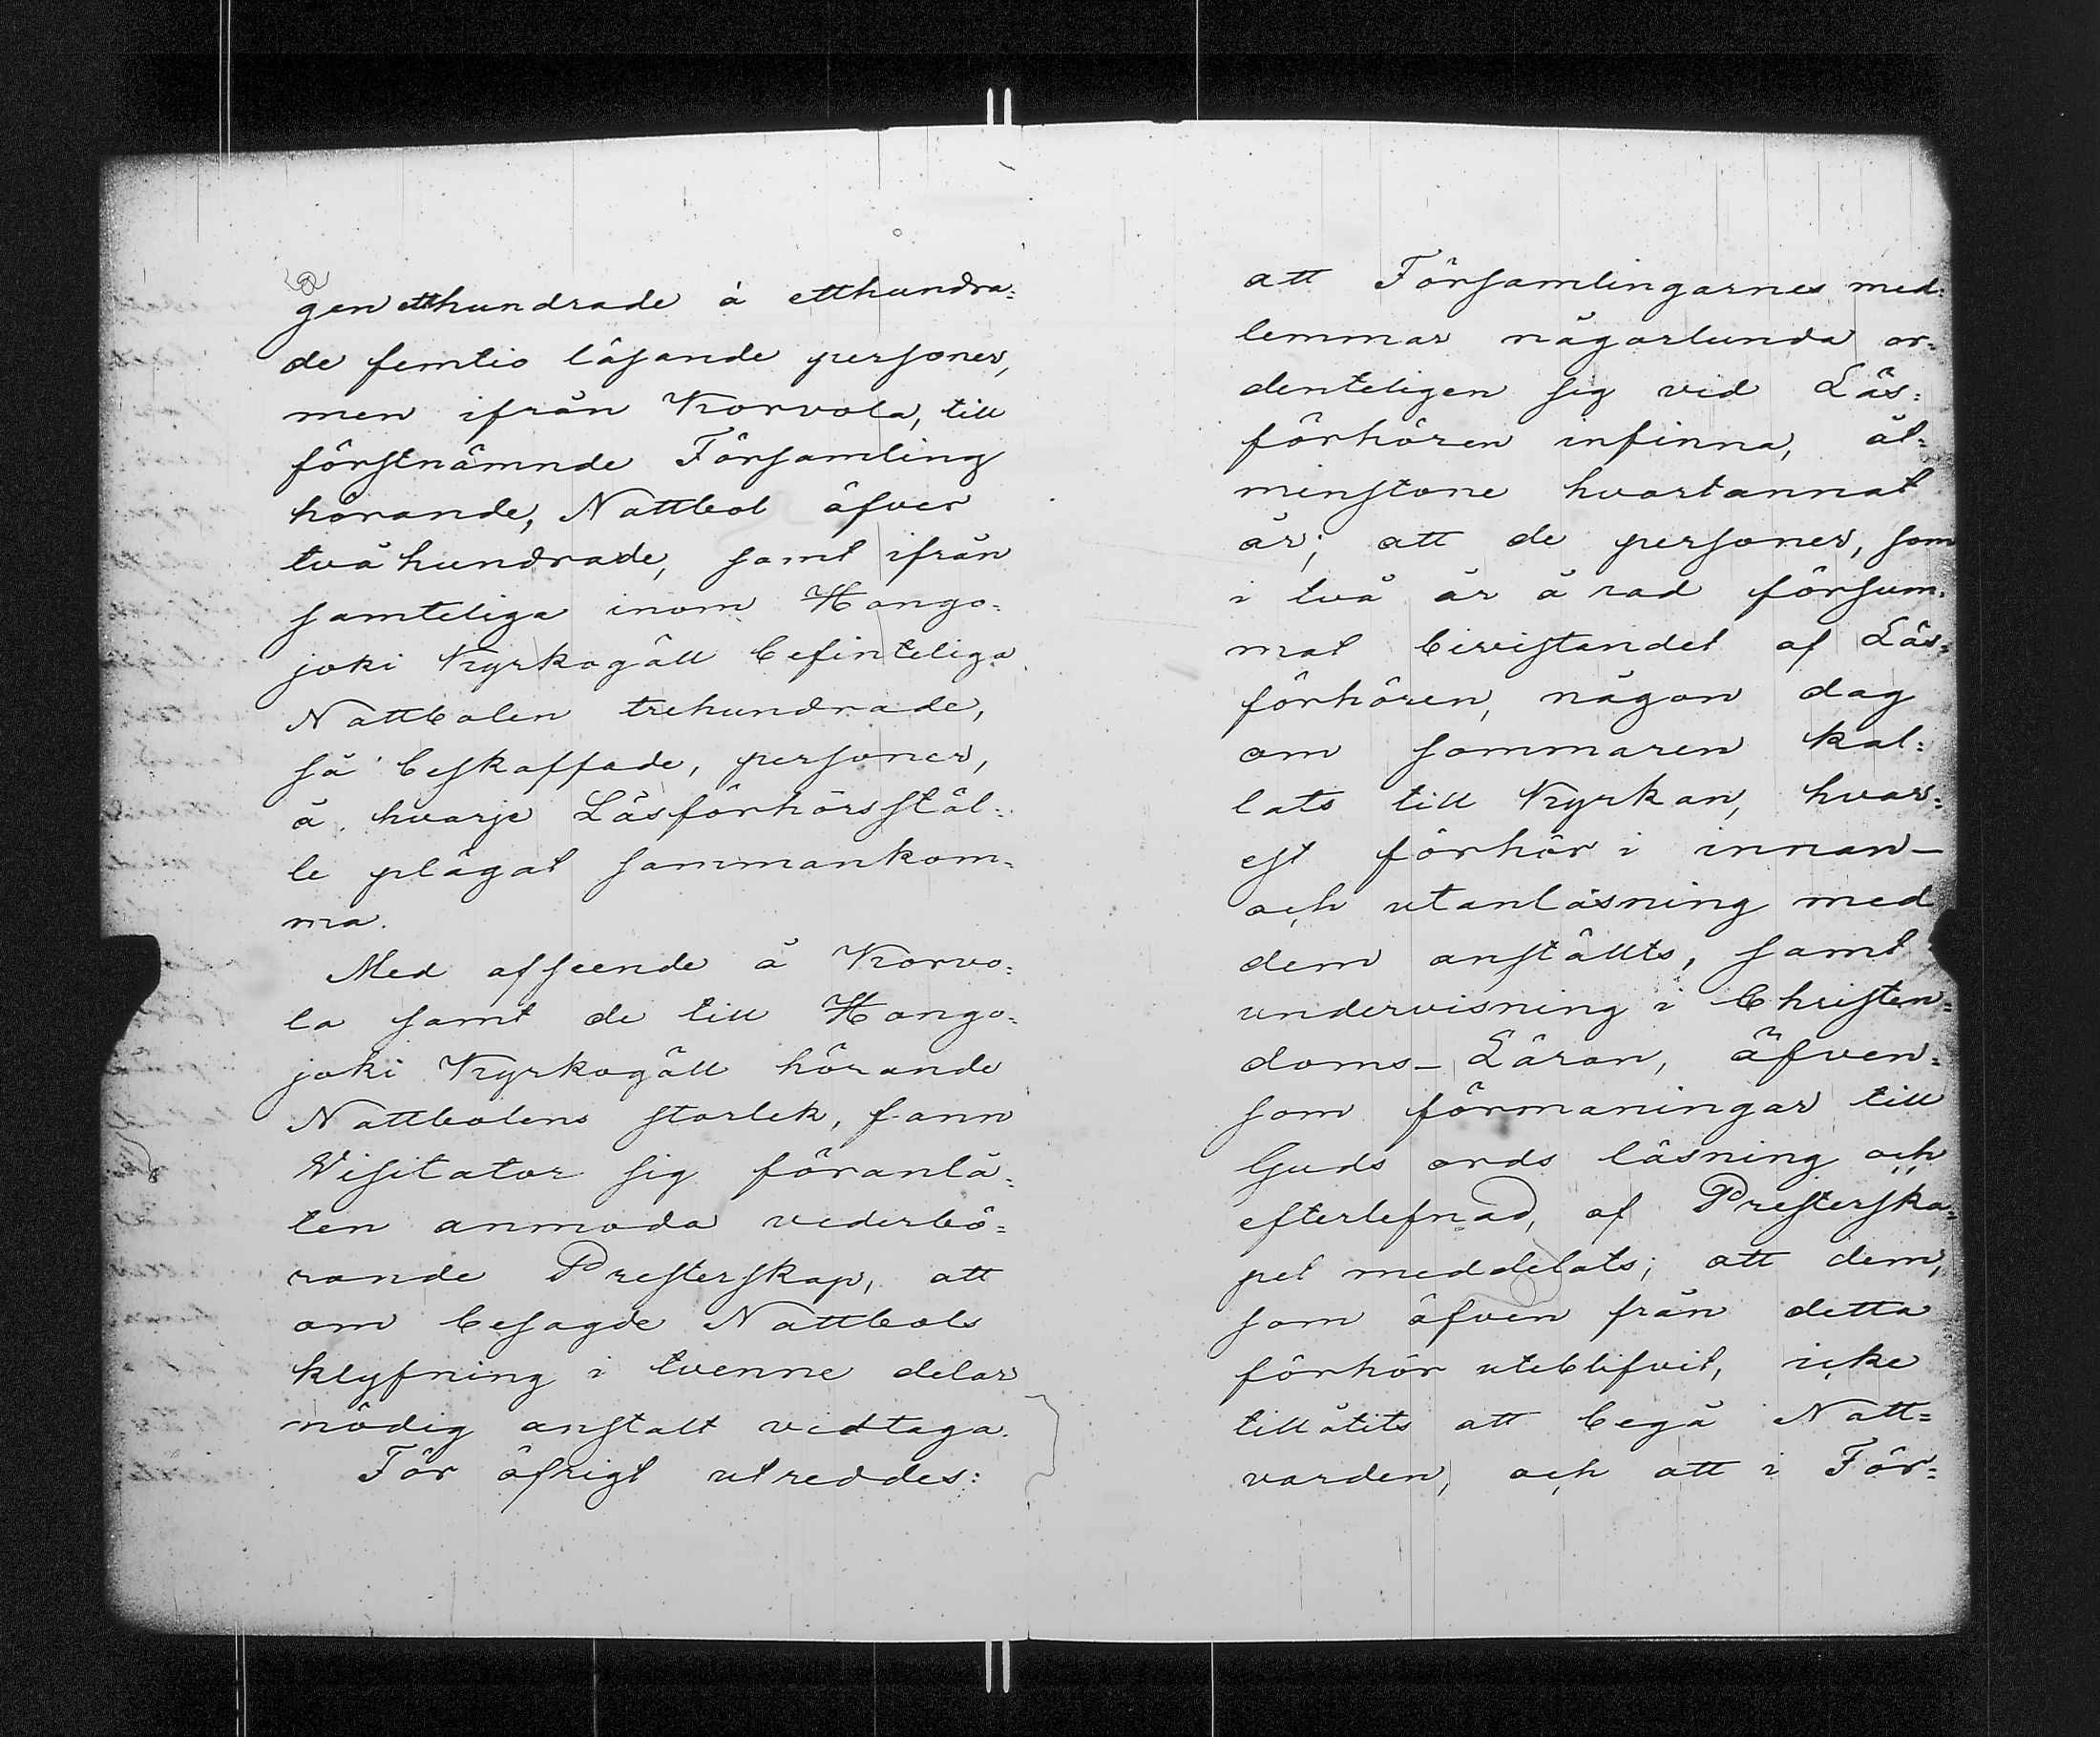 gen etthundrade à etthundra=
de femtio läsande personer,
men ifrån Korvola, till
förstnämnde Församling
hörande, Nattbol äfver
tvåhundrade, samt ifrån
samteliga inom Hongo=
joki Kyrkogäll befinteliga
Nattbolen trehundrade,
så beskaffade, personer,
å hvarje Läsförhörsstäl=
le plägat sammankom=
ma.
Med afseende å Korvo=
la samt de till Hongo=
joki Kyrkogäll hörande
Nattbolens storlek, fann
Visitator sig föranlå=
ten anmoda vederbö=
rande Presterskap, att
om besagde Nattbols
klyfning i tvenne delar
nödig anstalt vidtaga.
För öfrigt utreddes:
att Församlingarnes med=
lemmar någorlunda or=
denteligen sig vid Läs=
förhören infinna, åt=
minstone hvartannat
år; att de personer, som
i två år å rad försum=
mat bivistandet af Läs=
förhören, någon dag
om sommaren kal=
lats till Kyrkan, hvar=
est förhör i innan-
och utanläsning med
dem anställts, samt
undervisning i Christen=
doms-Läran, äfven=
som förmaningar till
Guds ords läsning och
efterlefnad, af Presterska=
pet meddelats; att dem,
som äfven från detta
förhör uteblifvit, icke
tillåtits att begå Natt=
varden, och att i För=